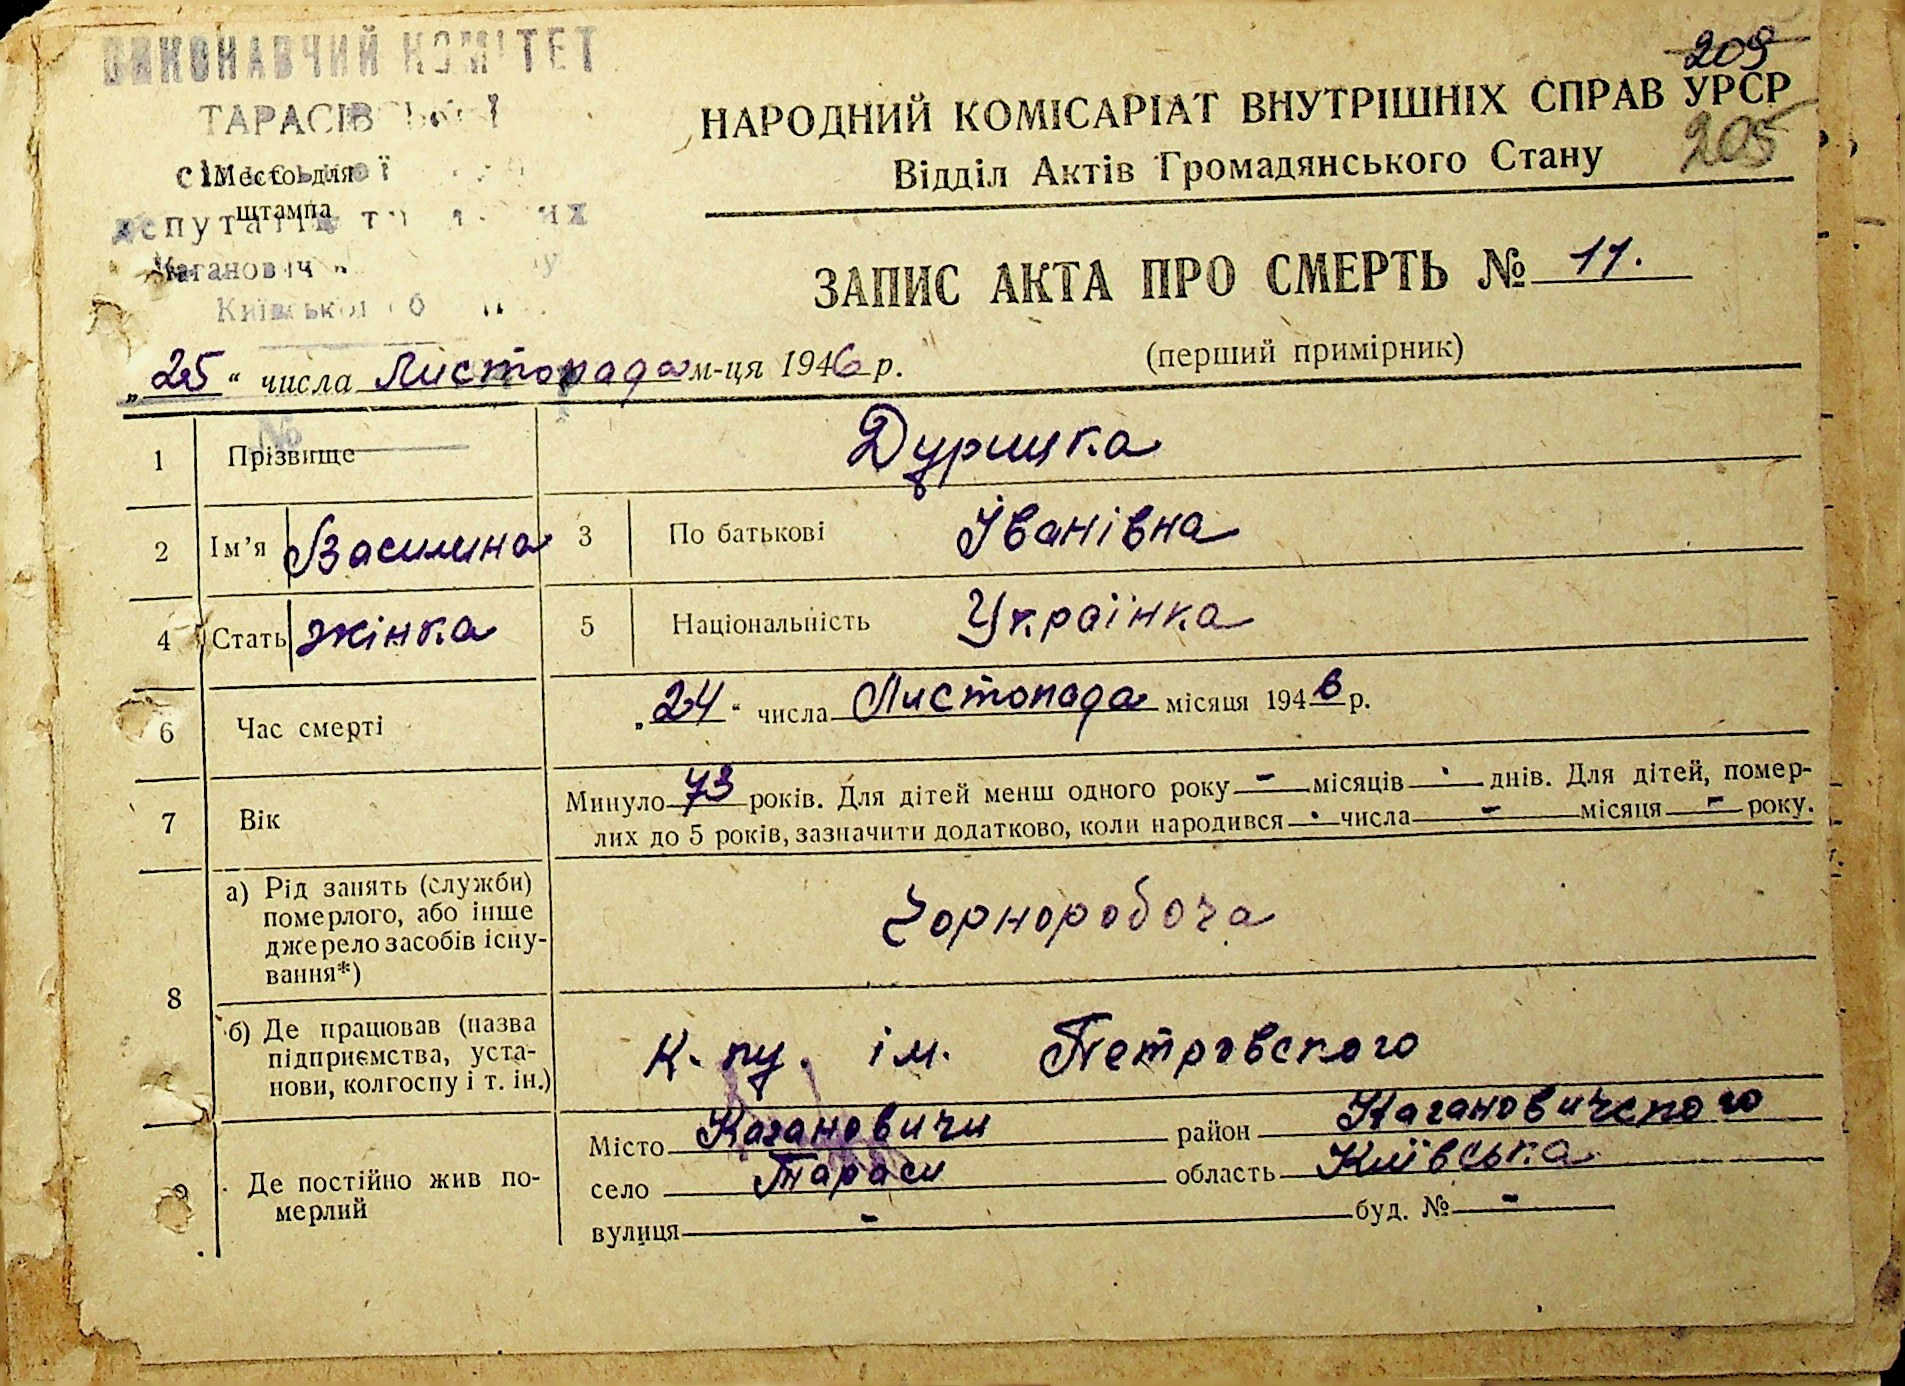 ВИКОНАВЧИЙ КОМІТЕТ
ТАРАСІВСЬКОЇ
Место для
штампа
депутатів
Каганович
Київської
209
205
НАРОДНИЙ КОМІСАРІАТ ВНУТРІШНІХ СПРАВ УРСР
Відділ Актів Громадянського Стану
ЗАПИС АКТА ПРО СМЕРТЬ № 11.
(перший примірник)
„25“ числа Листопада м-ця 1946 р.
№
1 Прізвище Дурицка
2 Ім'я Василина 3 По батькові Іванівна
4 Стать жінка 5 Національність Українка
6 Час смерті „24“ числа Листопада місяця 1946 р.
7 Вік Минуло 73 років. Для дітей менш одного року - місяців - днів. Для дітей, помер-
лих до 5 років, зазначити додатково, коли народився - числа - місяця - року.
8 а) Рід занять (служби)
померлого, або інше
джерело засобів існу-
вання*)
Чорноробоча
б) Де працював (назва
підприємства, уста-
нови, колгоспу і т. ін.)
К. пу. ім. Петровского
9 Де постійно жив по-
мерлий
Місто Кагановичи район Кагановичского
село Тараси область Київська
вулиця - буд. № -